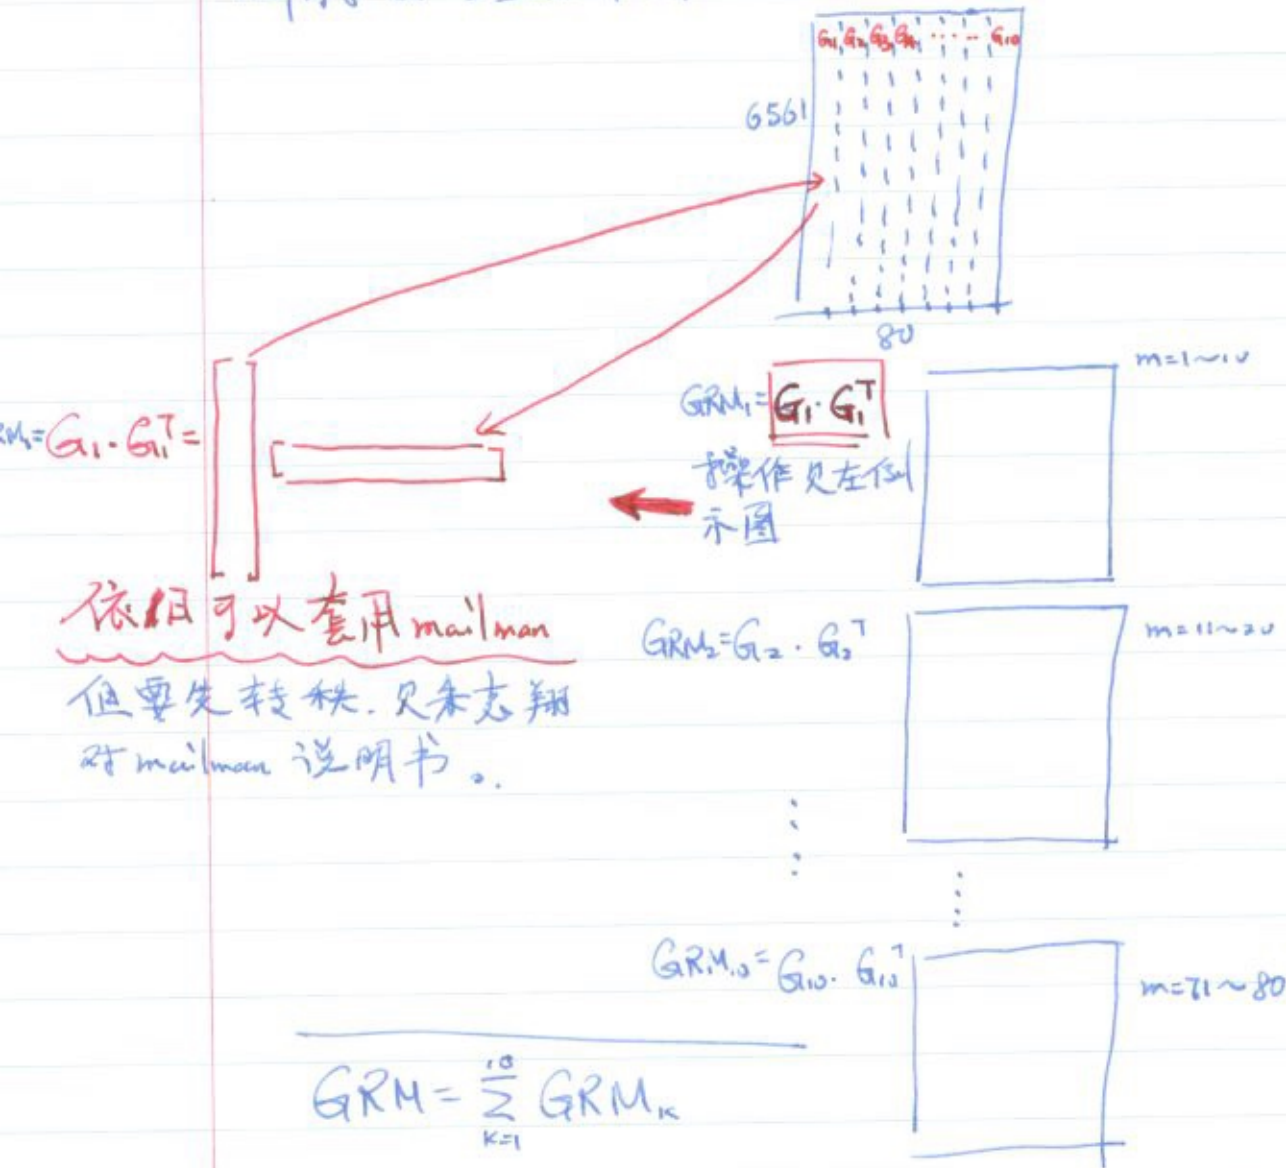 G1 G2 G3 G4 ..... G10
6561
80
m=1~10
GRM1=G1·G1ᵀ
操作见左侧
示图
RM1=G1·G1ᵀ=
依旧可以套用mailman
但要先转秩.见朱志翔
对mailman说明书。
GRM2=G2·G2ᵀ
m=11~20
GRM10=G10·G10ᵀ
m=71~80
GRM=∑GRMK
10
K=1